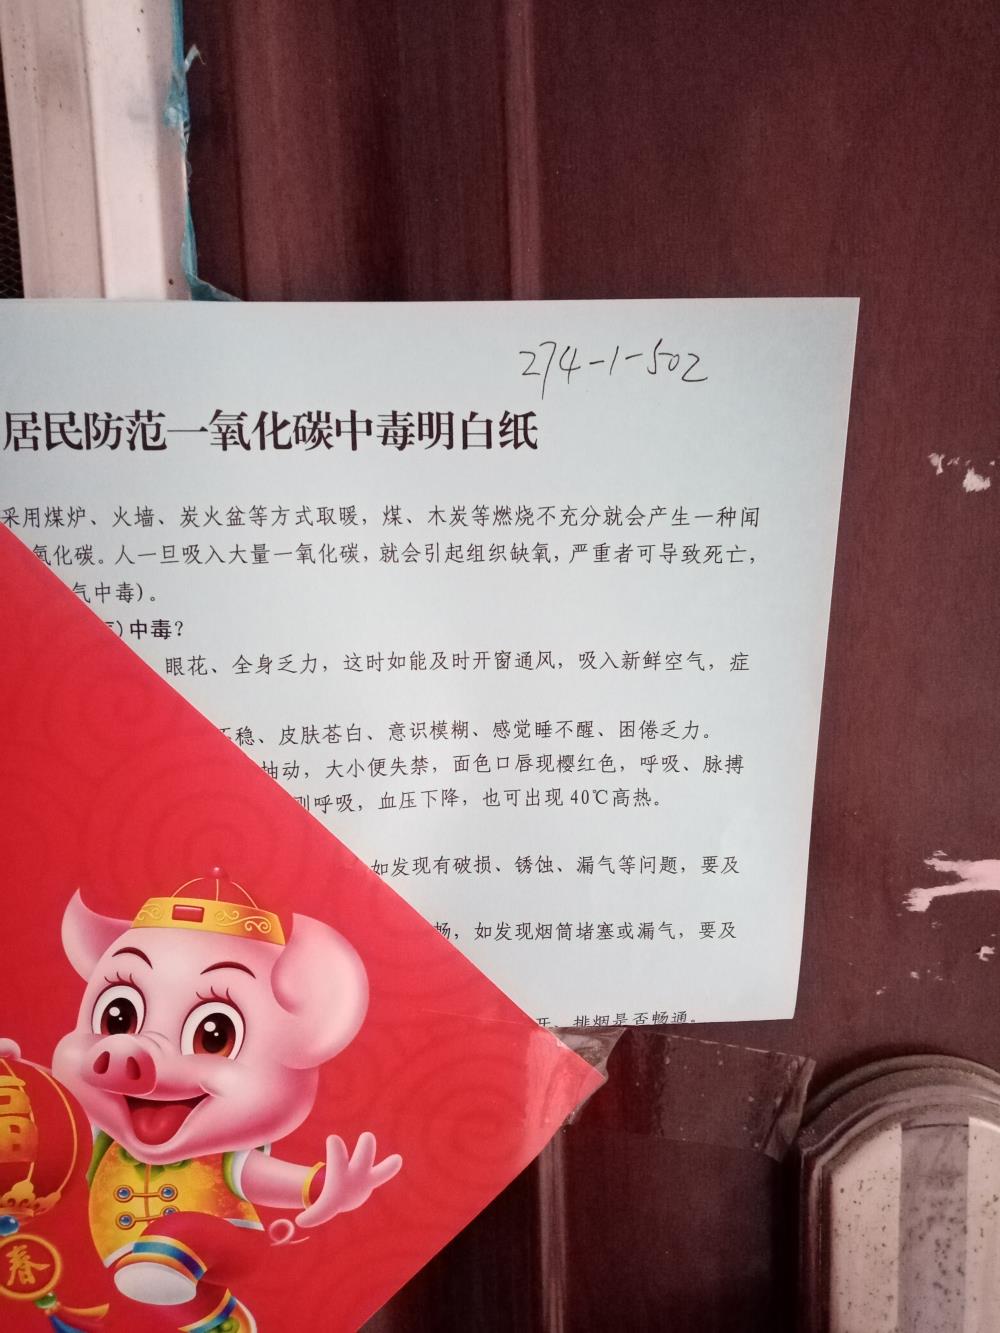 274-1-502
居民防范一氧化碳中毒明白纸
采用煤炉、火墙、炭火盆等方式取暖，煤、木炭等燃烧不充分就会产生一种闻
氧化碳。人一旦吸入大量一氧化碳，就会引起组织缺氧，严重者可导致死亡，
气中毒)。
)中毒？
眼花、全身乏力，这时如能及时开窗通风，吸入新鲜空气，症
不稳、皮肤苍白、意识模糊、感觉睡不醒、困倦乏力。
抽动，大小便失禁，面色口唇现樱红色，呼吸、脉搏
则呼吸，血压下降，也可出现40℃高热。
如发现有破损、锈蚀、漏气等问题，要及
畅，如发现烟筒堵塞或漏气，要及
开、排烟是否畅通。
福
春